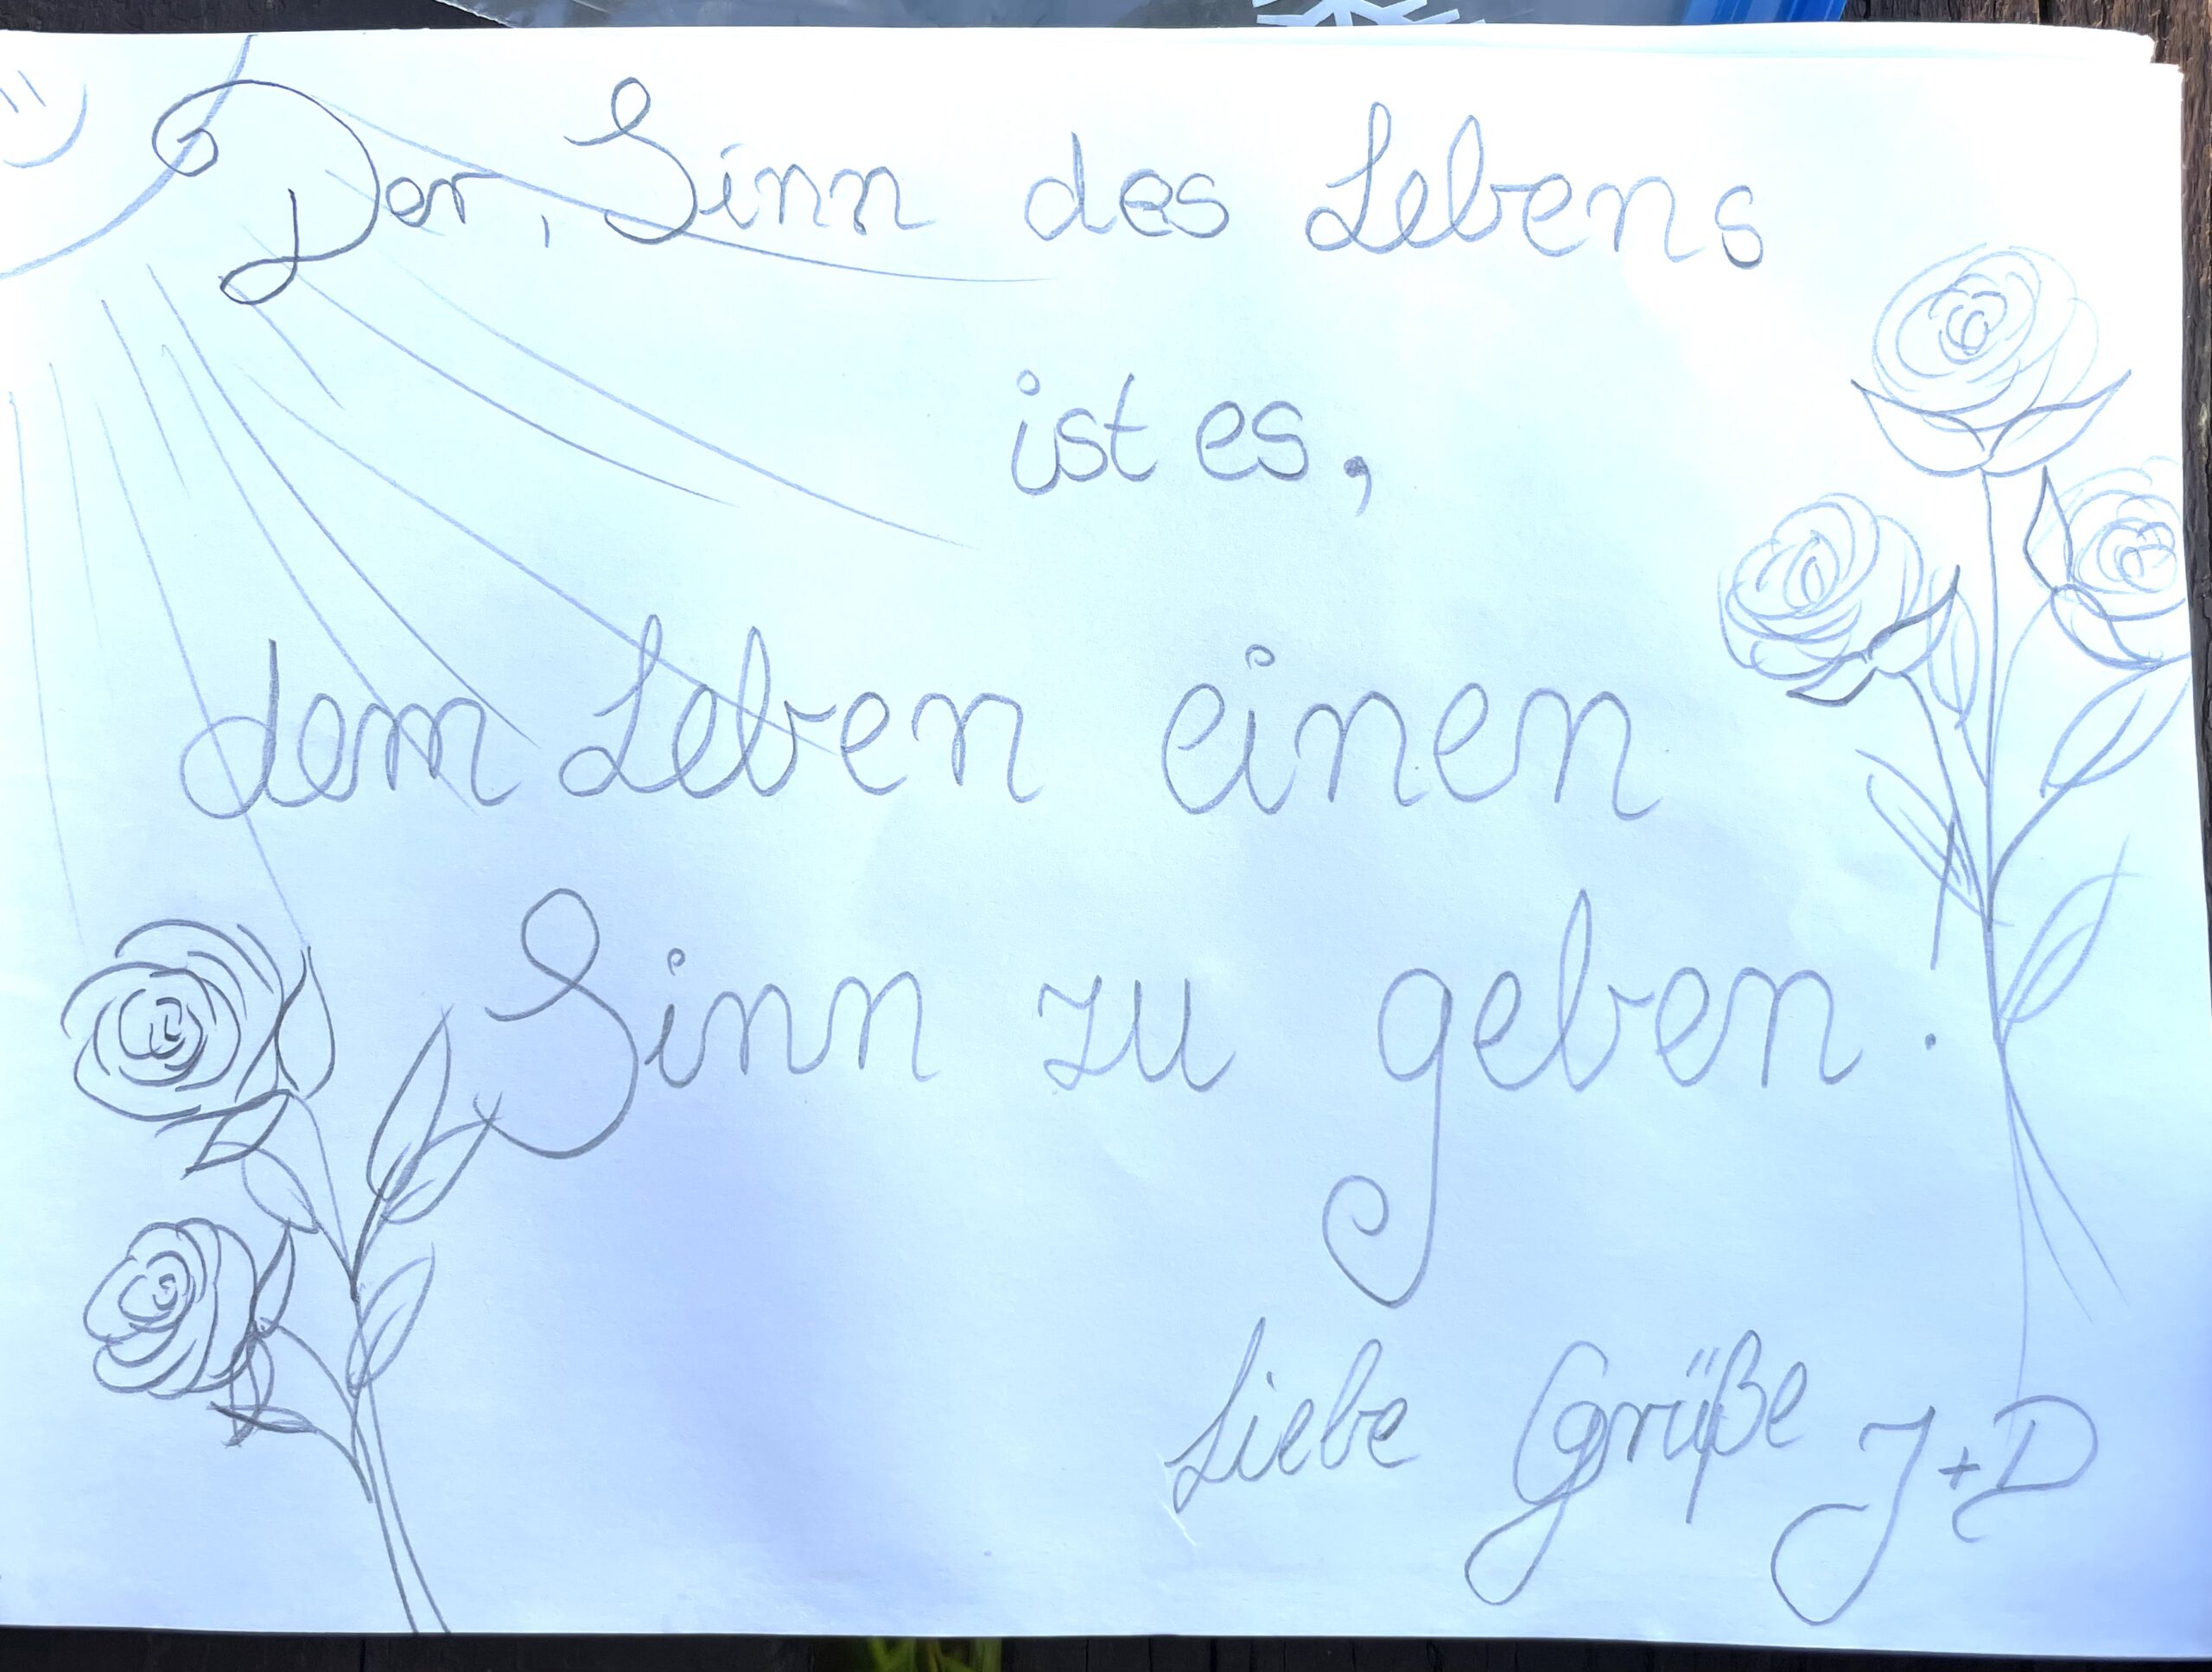 Der, Sinn des Lebens
ist es,
dem Leben einen
Sinn zu geben!
Liebe Grüße J+D